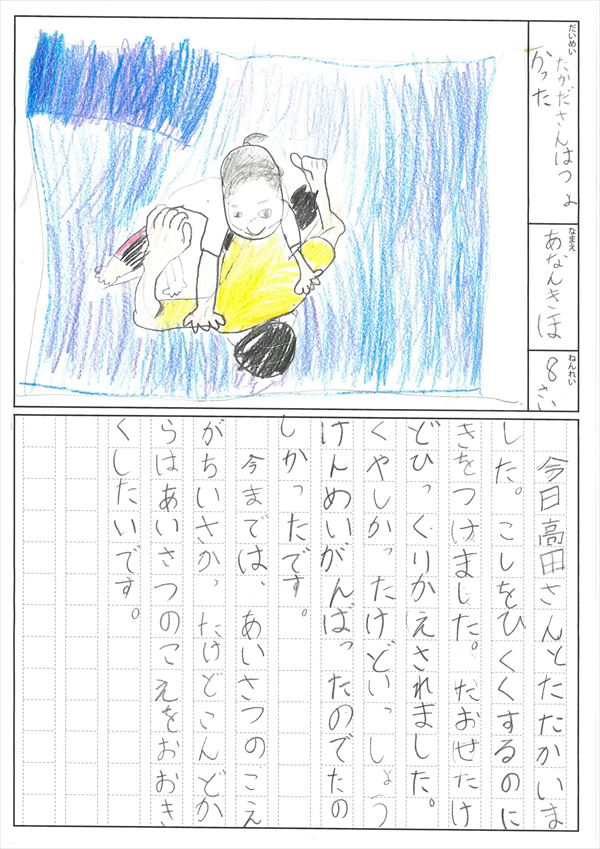 だいめい
たかださんはつよ
かった
なまえ
あなんきほ
ねんれい
8さい
今日高田さんとたたかいま
した。こしをひくくするのに
きをつけました。たおせたけ
どひっくりかえされました。
くやしかったけどいっしょう
けんめいがんばったのでたの
しかったです。
今までは、あいさつのこえ
がちいさかったけどこんどか
らはあいさつのこえをおおき
くしたいです。